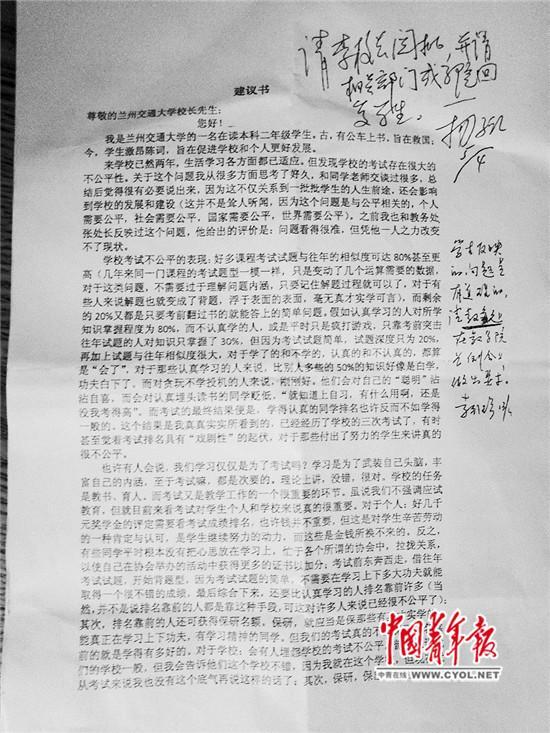 请李校长阅批，并请
相关部门或
学生。
5/4
建议书
尊敬的兰州交通大学校长先生：
您好！
我是兰州交通大学的一名在读本科二年级学生。古，有公车上书，旨在救国；
今，学生激昂陈词，旨在促进学校和个人更好发展。
来学校已然两年，生活学习各方面都已适应。但发现学校的考试存在很大的
不公平性。关于这个问题我从很多方面思考了好久，和同学老师交谈过很多，总
结后觉得很有必要说出来，因为这不仅关系到一批批学生的人生前途，还会影响
到学校的发展和建设（这并不是耸人听闻，因为这个问题是与公平相关的，个人
需要公平，社会需要公平，国家需要公平，世界需要公平）。之前我也和教务处
张处长反映过这个问题，他给出的评价是：问题看得很准，但凭他一人之力改变
不了现状。
学校考试不公平的表现：好多课程考试试题与往年的相似度可达 80%甚至更
高（几年来同一门课程的考试题型一模一样，只是变动了几个运算需要的数据，
对于这类问题，不需要过于理解问题内涵，只要记住解题过程就可以了，对于有
些人来说解题也就变成了背题，浮于表面的表面，毫无真才实学可言），而剩余
的 20%又都是只要考前翻过书的就能答上的简单问题。假如认真学习的人对所学
知识掌握程度为 80%，而不认真学的人，或是平时只是疯打游戏，只靠考前突击
往年试题的人对知识只掌握了 30%，但因为考试试题简单，试题深度只为 20%，
再加上试题与往年相似度很大，对于学了的和不学的，认真的和不认真的，都算
是“会了”，对于那些认真学习的人来说，比别人多些的 50%的知识好像是白学，
功夫白下了。而对贪玩不学投机的人来说，刚刚好。他们会对自己的“聪明”沾
沾自喜，而会对认真埋头读书的同学贬低，“就知道上自习，有什么用啊，还是
没我考得高”。而考试的最终结果便是，学得认真的同学排名也许反而不如学得
一般的。这个结果是我真真实实所看到的，已经经历了学校的三次考试了，有时
甚至觉着考试排名具有“戏剧性”的起伏，对于那些付出了努力的学生来讲真的
很不公平。
也许有人会说，我们学习仅仅是为了考试吗？学习是为了武装自己头脑，丰
富自己的内涵，至于考试嘛，都是次要的。理论上讲，没错，很对。学校的任务
是教书、育人。而考试又是教学工作的一个很重要的环节。虽说我们不强调应试
教育，但就目前来看考试对学生个人和学校来说真的很重要。对于个人：好几千
元奖学金的评定需要看考试成绩排名，也许钱并不重要，但这是对学生辛苦劳动
的一种肯定与认可，是学生继续努力的动力，而这些是金钱所换不来的。反之，
有些同学平时根本没有把心思放在学习上，忙于各个所谓的协会中，拉拢关系，
以便自己在协会举办的活动中获得更多的证书以加分；考试前东奔西走，借往年
考试试题，开始背题型，因为考试试题的简单，不需要在学习上下多大功夫就能
取得一个很不错的成绩，最后综合下来，还要比认真学习的人排名靠前许多（当
然，并不是说排名靠前的人都是靠这种手段，可这对许多人来说已经很不公平了）；
其次，排名靠前的人还可获得保研名额。保研，就应当是保那些
能真正在学习上下功夫，有学习精神的同学。但我们的考试真的
前的就是学得有多好的。对于学校：会有人埋怨学校的考试不公平，
们的学校一般，但我会告诉他们这个学校不错，因为我就在这个学
从考试来说我也没有这个底气再说这样的话了；其次，保研，保
学生反映
的问题是
有道理的，
请教务处
在教学院
长例会上
做出要求。
中国青年报
中青在线 WWW.CYOL.NET